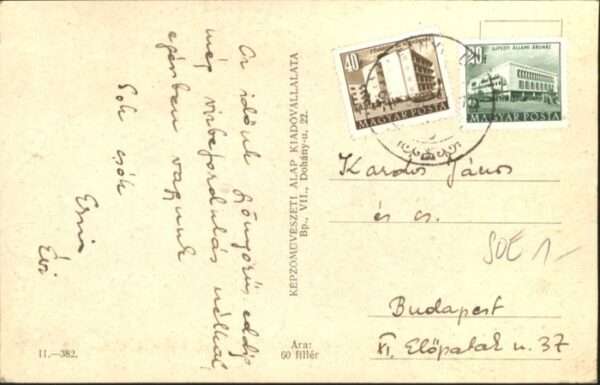 Az időnk gyönyörű, eddig
még vízbefordulás nélkül,
egészben vagyunk
Sok csók
Erni
Évi
II.—382.
Ára:
60 fillér
KÉPZŐMŰVÉSZETI ALAP KIADÓVÁLLALATA
Bp., VII., Dohány-u. 22.
40
MAGYAR POSTA
20
ÚJPESTI ÁLLAMI ÁRUHÁZ
MAGYAR POSTA
Kardos János
és cs.
SOE 1-
Budapest
XI. Előpatak u. 37